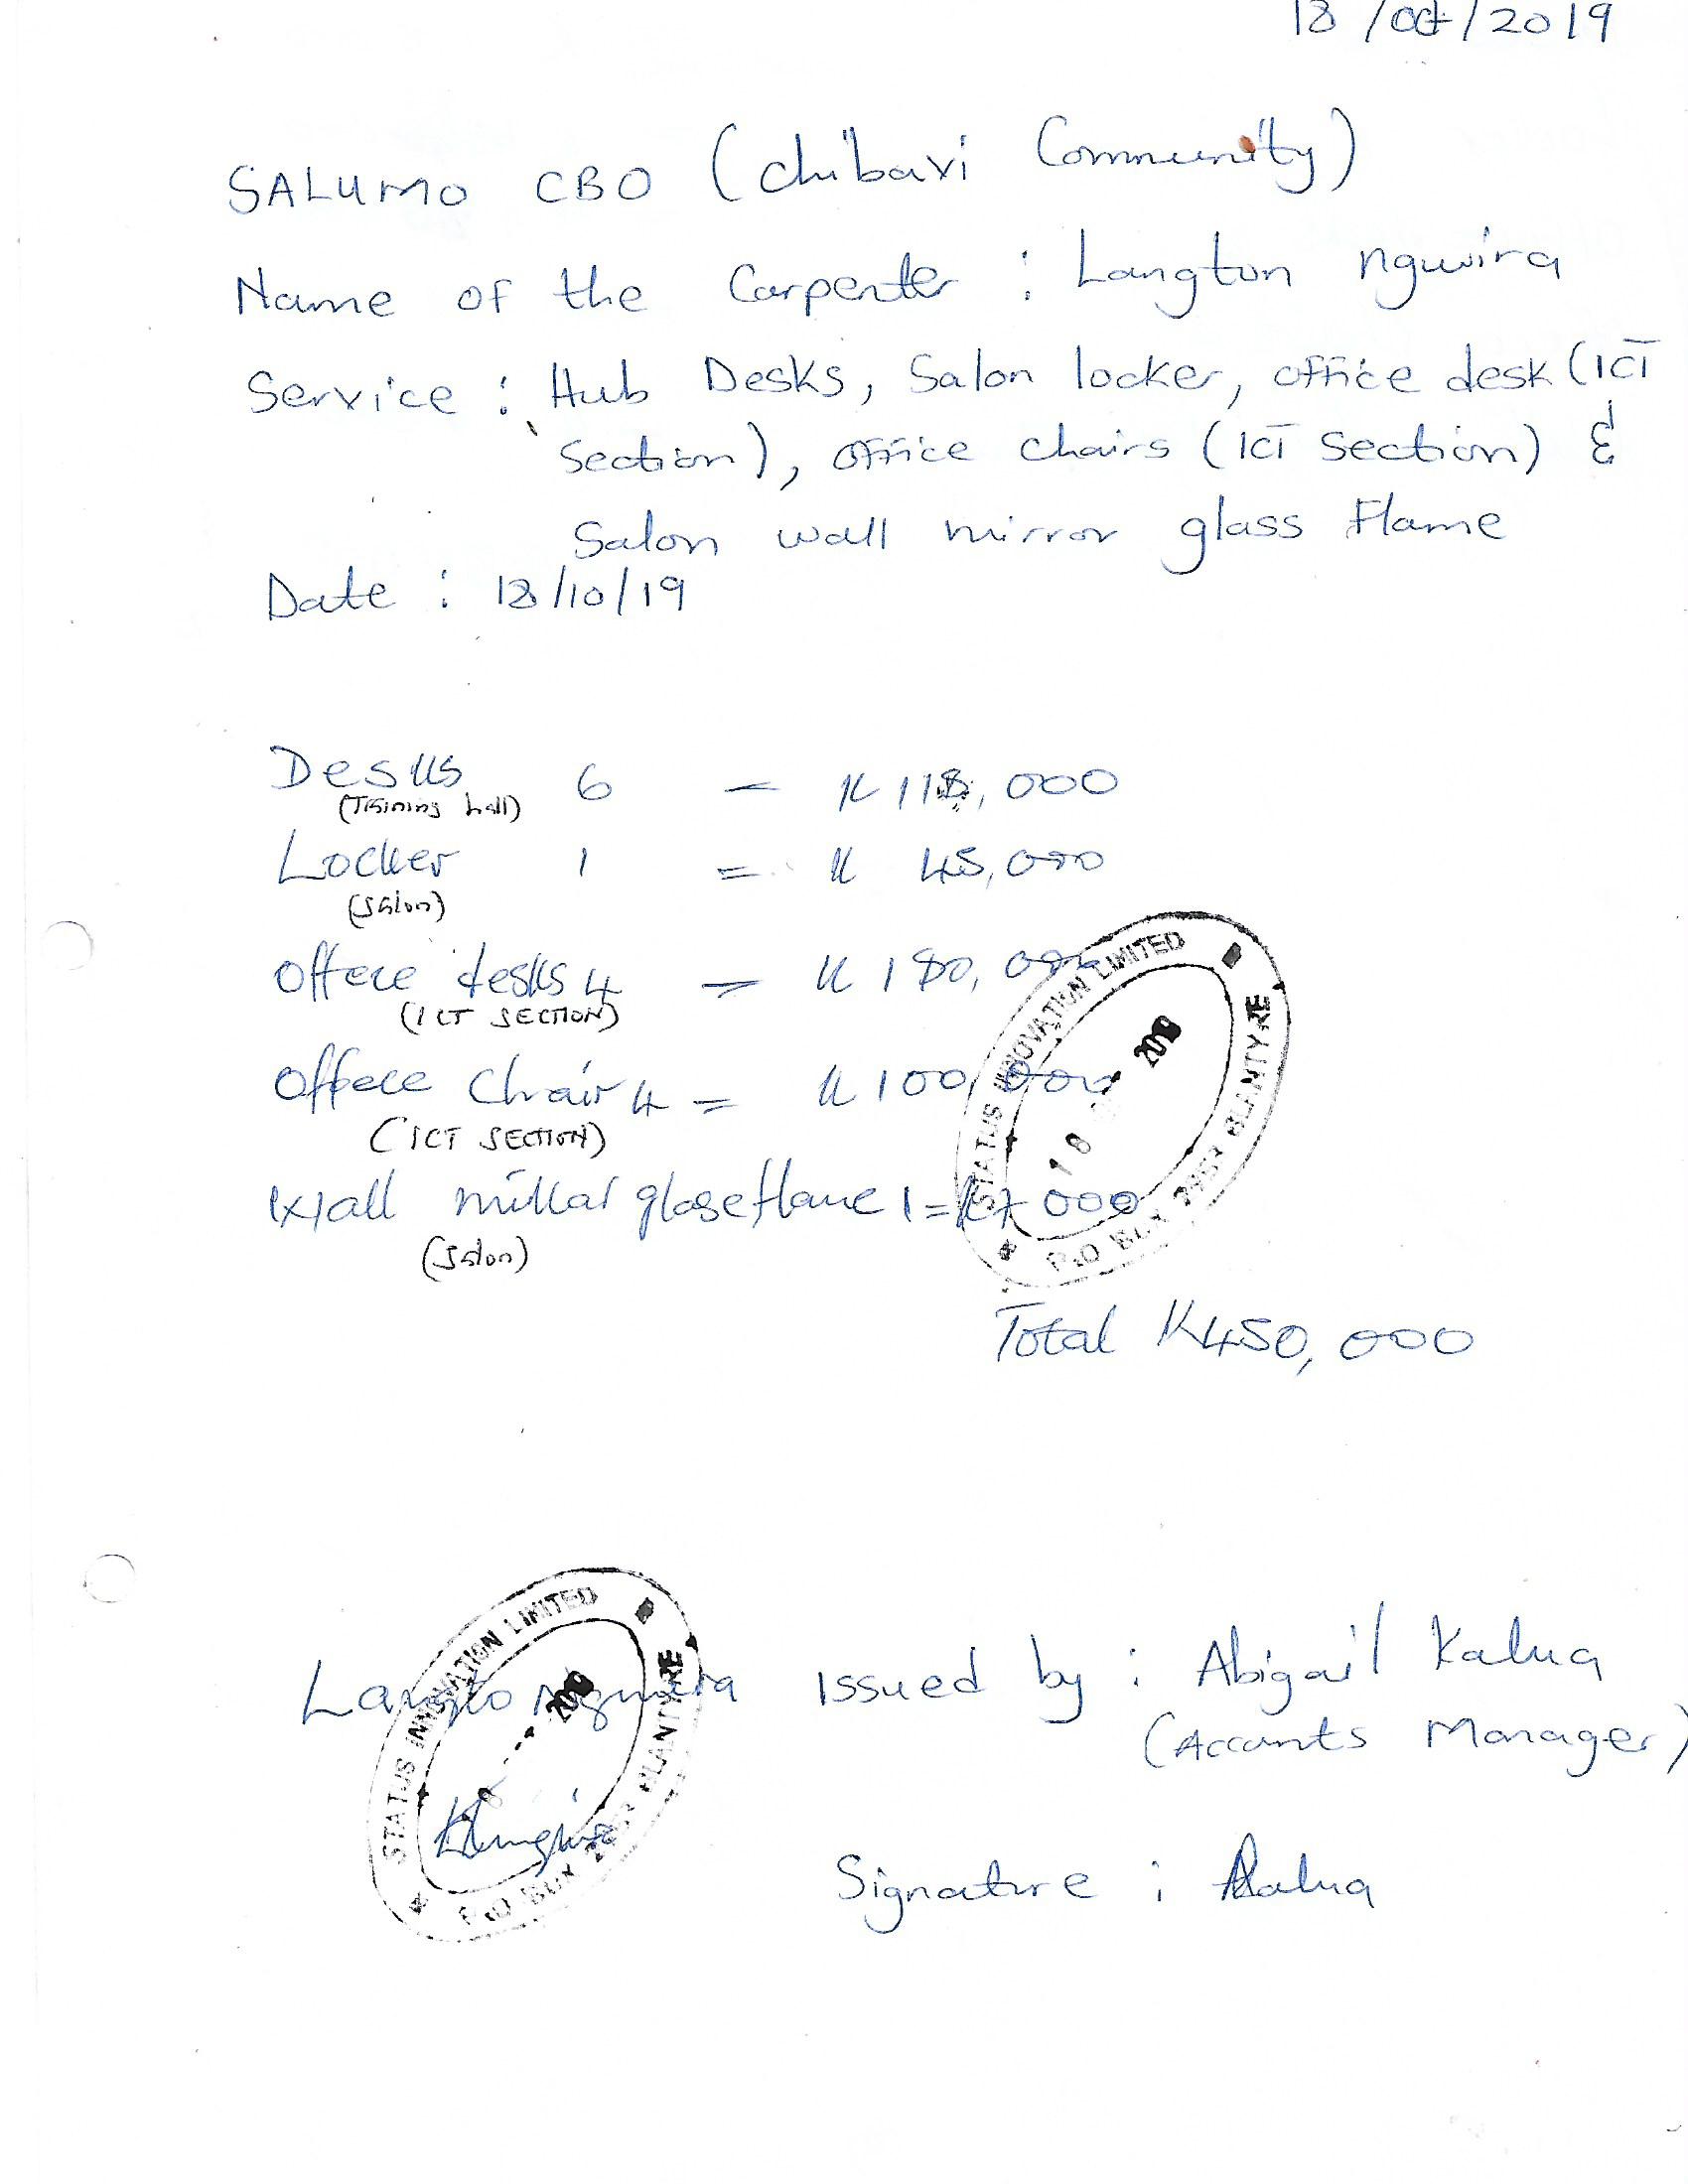 18/Oct/2019
SALUMO CBO (Chibavi Community)
Name of the Carpenter : Langton ngwira
Service : Hub Desks, Salon locker, office desk (ICT
Section), office chairs (ICT Section) &
Salon wall mirror glass flame
Date : 18/10/19
Desks 6 = K118,000
(Training hall)
Locker 1 = K 45,000
(Salon)
Offece desks 4 = K180,000
(ICT SECTION)
Offece Chair 4 = K100,000
(ICT SECTION)
Wall millar glaseflame 1 = K7 000
(Salon)
STATUS INNOVATION LIMITED
18 2019
P.O BOX BLANTYRE
Total K450,000
Langto Ngwira Issued by : Abigail Kalua
(Accounts Manager)
STATUS INNOVATION LIMITED
2019
P.O BOX BLANTYRE
Signature : AKalua